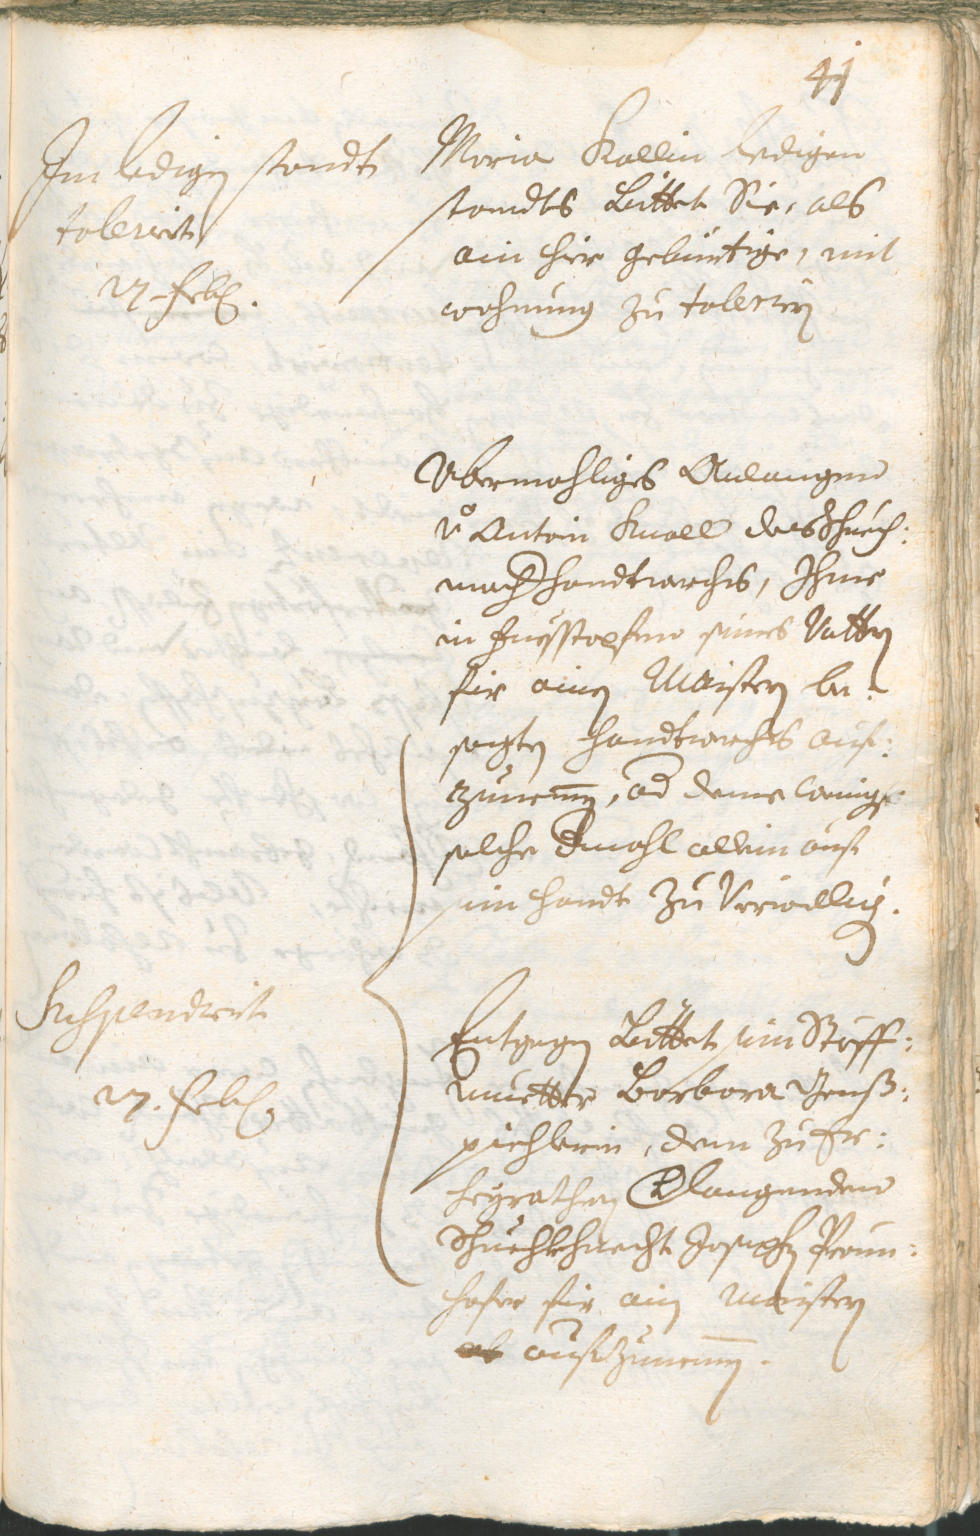 41
Im ledigen standt
toleriert
27. Feb.
Maria Kallin ledigen
standts bittet Sie, als
ain hier gebürtige, mit
wohnung zu tolerirn
Abermahliges Anlangen
vo Antoni Knoll des Schuech:
macher handtwerchs, Ihme
in fuesstapfen seines Vatters
für ainen Maistern be:
sagten handtwerchs auf:
zunemen, od deme wenigst
solche mahl allein auf
sein handt zu verwilligen.
Suspendiert
27. Feb.
Entgegen bittet sein Stieff:
muetter Barbara
pichlerin, dem zu Er:
heyrathen verlangenden
Schuechkhnecht Josephen Praun:
hofer für ain Maistern
auf zunemen.